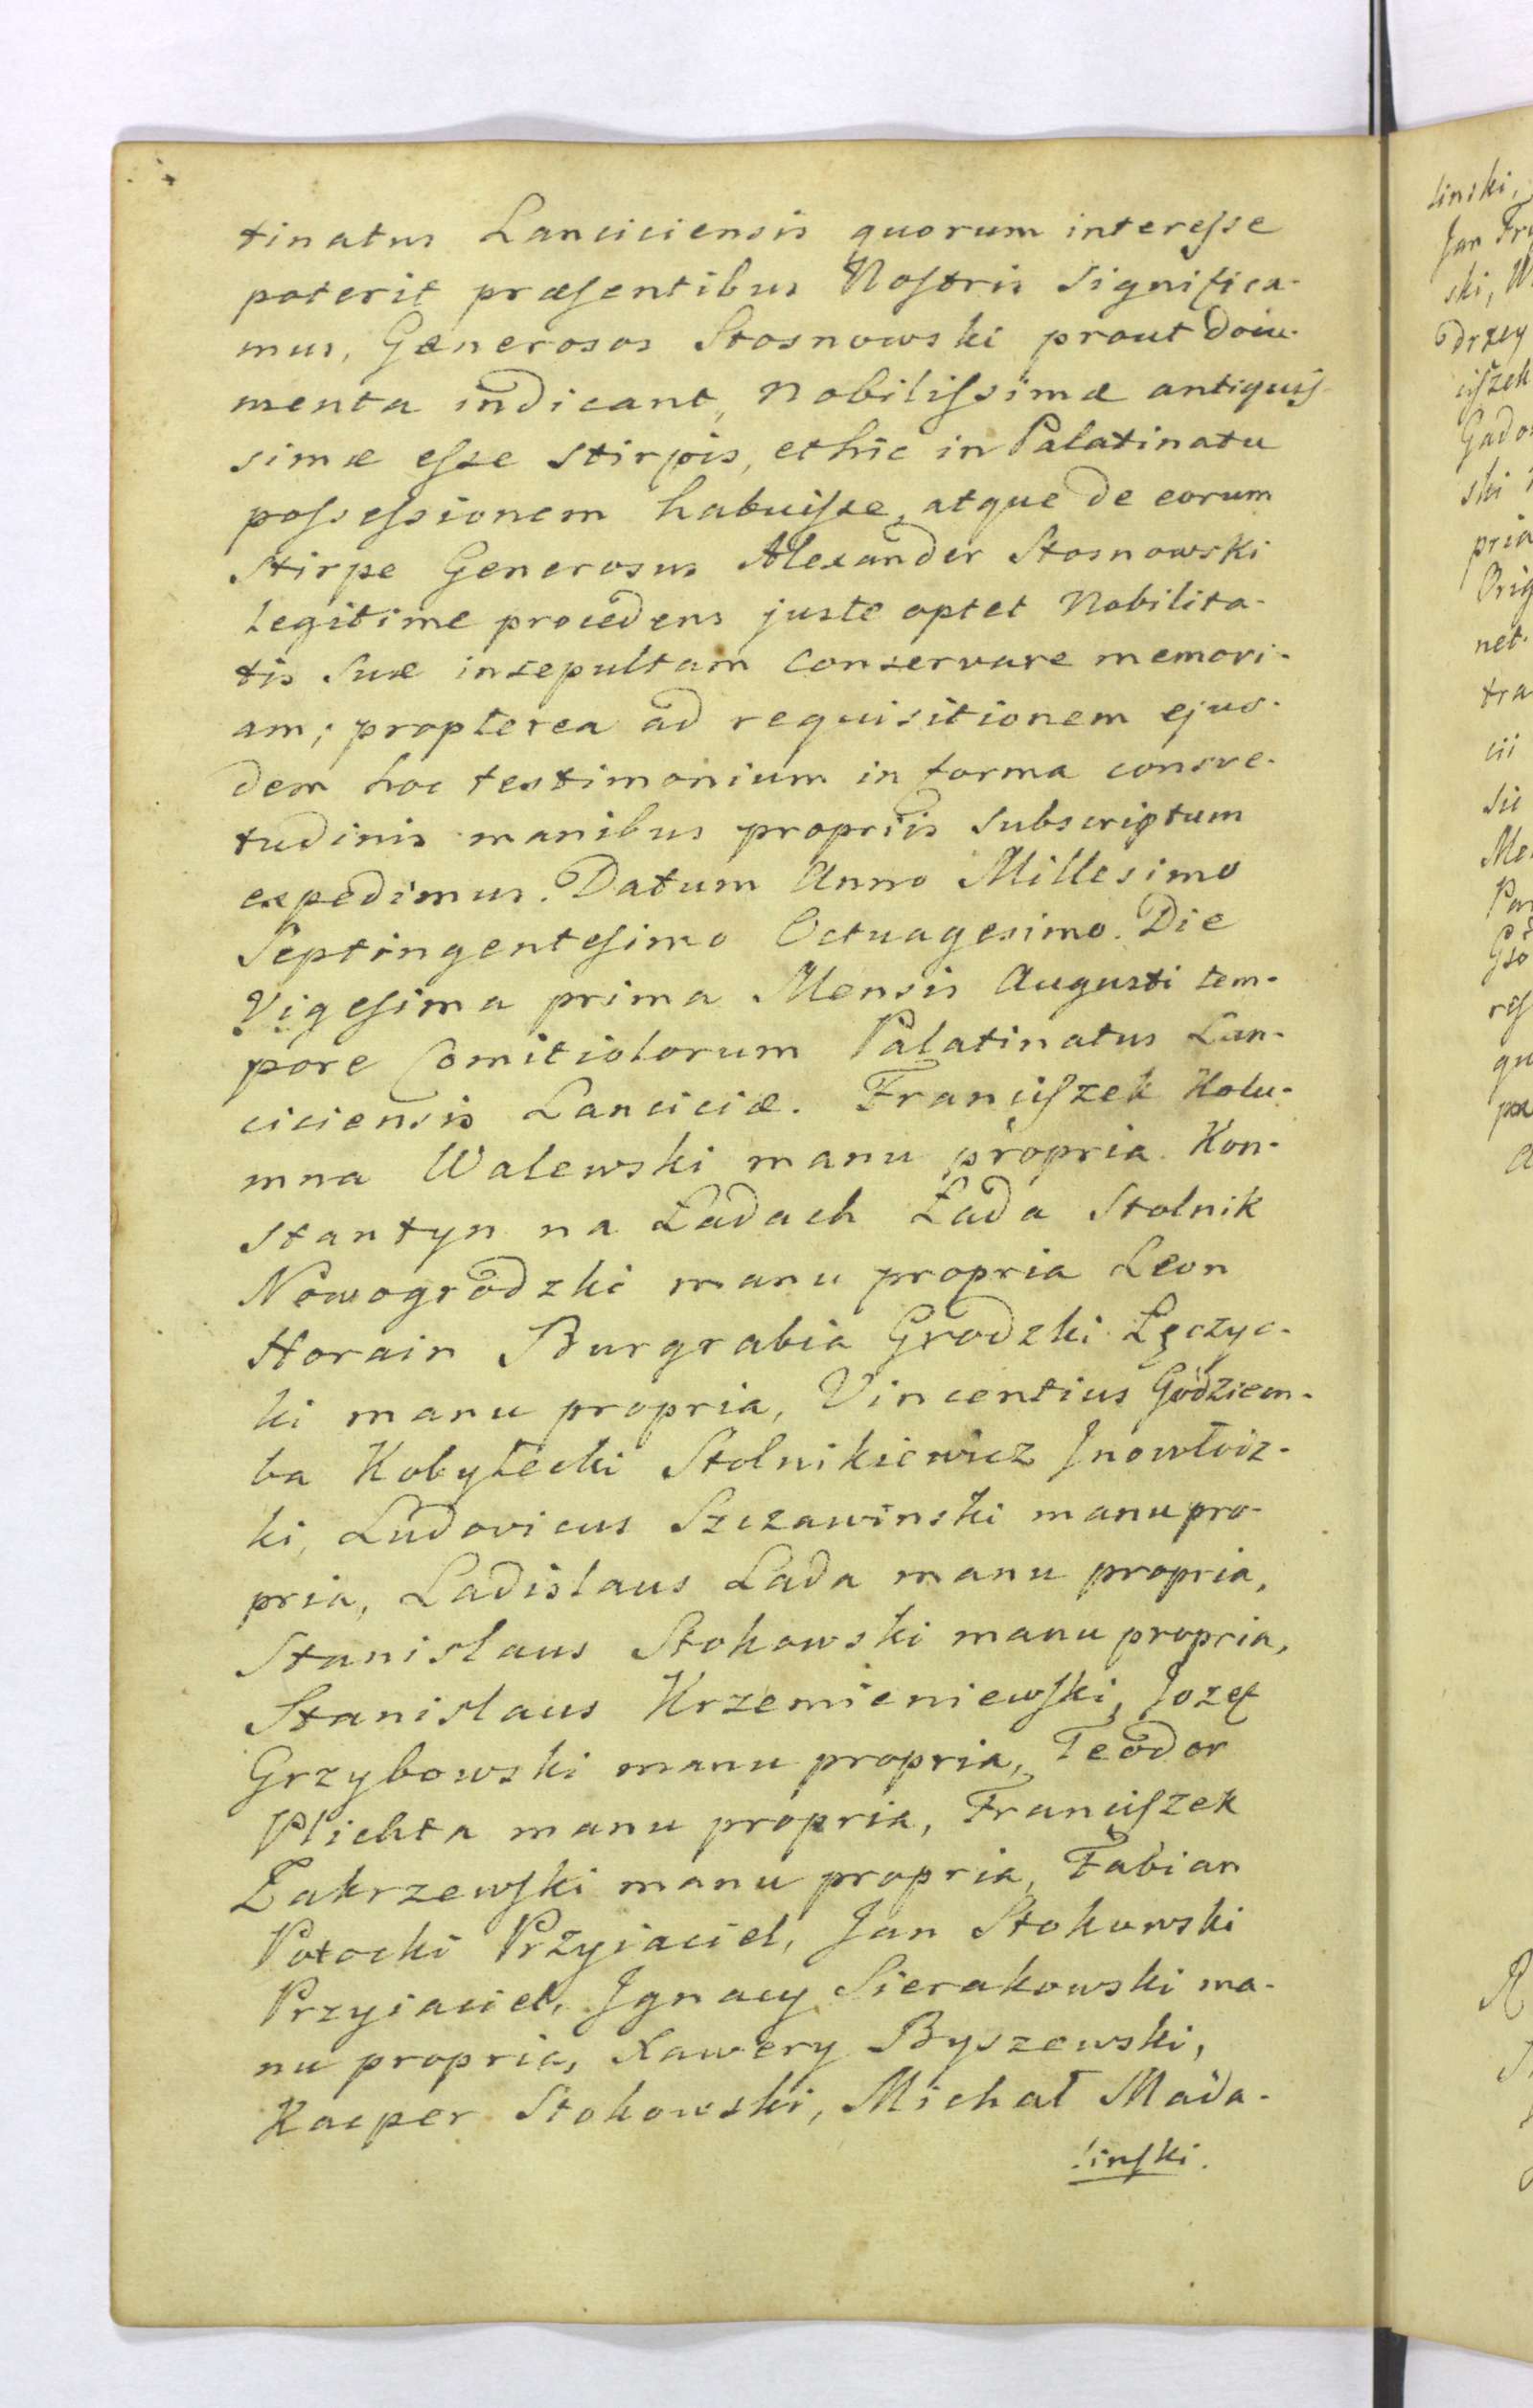 tinatus Lanciciensis quorum interesse
poterit præsentibus Nostris significa-
mus, Generosos Stosnowski prout docu-
menta indicant, Nobilissimæ antiquis-
simæ esse stirpis, et hic in Palatinatu
possessionem habuisse, atque de eorum
stirpe Generosus Alexander Stosnowski
legitime procedens juste optet Nobilita-
tis suæ insepultam conservare memori-
am; propterea ad requisitionem ejus-
dem hoc testimonium in forma consve-
tudinis manibus propriis subscriptum
expedimus. Datum Anno Millesimo
Septingentesimo Octuagesimo. Die
Vigesima prima Mensis Augusti tem-
pore Comitiolorum Palatinatus Lan-
ciciensis Lanciciæ. Franciszek Kolu-
mna Walewski manu propria. Kon-
stantyn na Ładach Łada Stolnik
Nowogrodzki manu propria Leon
Horain Burgrabia Grodzki Łęczyc-
ki manu propria, Vincentius Godziem-
ba Kobyłecki Stolnikiewicz Inowłodz-
ki, Ludovicus Szczawinski manu pro-
pria, Ladislaus Lada manu propria,
Stanislaus Stokowski manu propria,
Stanislaus Krzemieniewski, Jozef
Grzybowski manu propria, Teodor
Plichta manu propria, Franciszek
Zakrzewski manu propria, Fabian
Potocki Przyiaciel, Jan Stokowski
Przyiaciel, Ignacy Sierakowski ma-
nu propria, Xawery Byszewski,
Kacper Stokowski, Michał Mada-
linski.
linski,
ski,
drzey
ciszek
ski
pria
net.
tra
cii